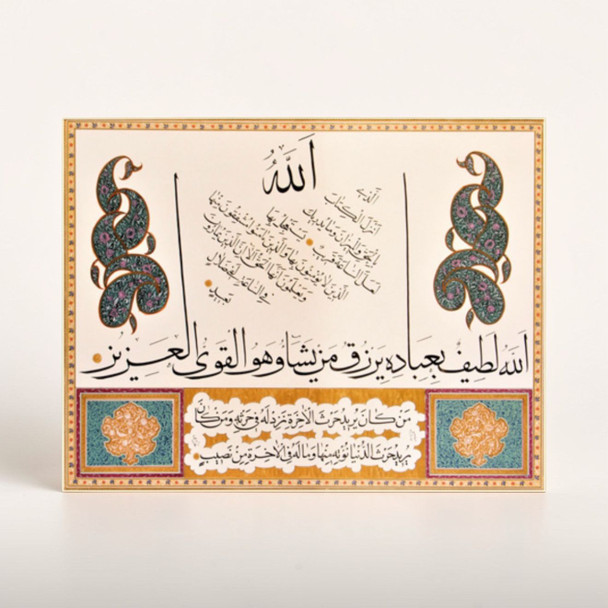 اَللّٰهُ
الَّذي
انزل الكتاب
بالحق والميزان وما يدريك
لعل الساعة قريب يستعجل بها
الذين لا يؤمنون بها والذين امنوا مشفقون منها
ويعلمون انها الحق الا ان الذين يمارون
في الساعة لفي ضلال
بعيد
الله لطيف بعباده يرزق من يشاء وهو القوى العزيز
من كان يريد حرث الاخرة نزد له في حرثه ومن كان
يريد حرث الدنيا نؤته منها وماله في الاخرة من نصيب